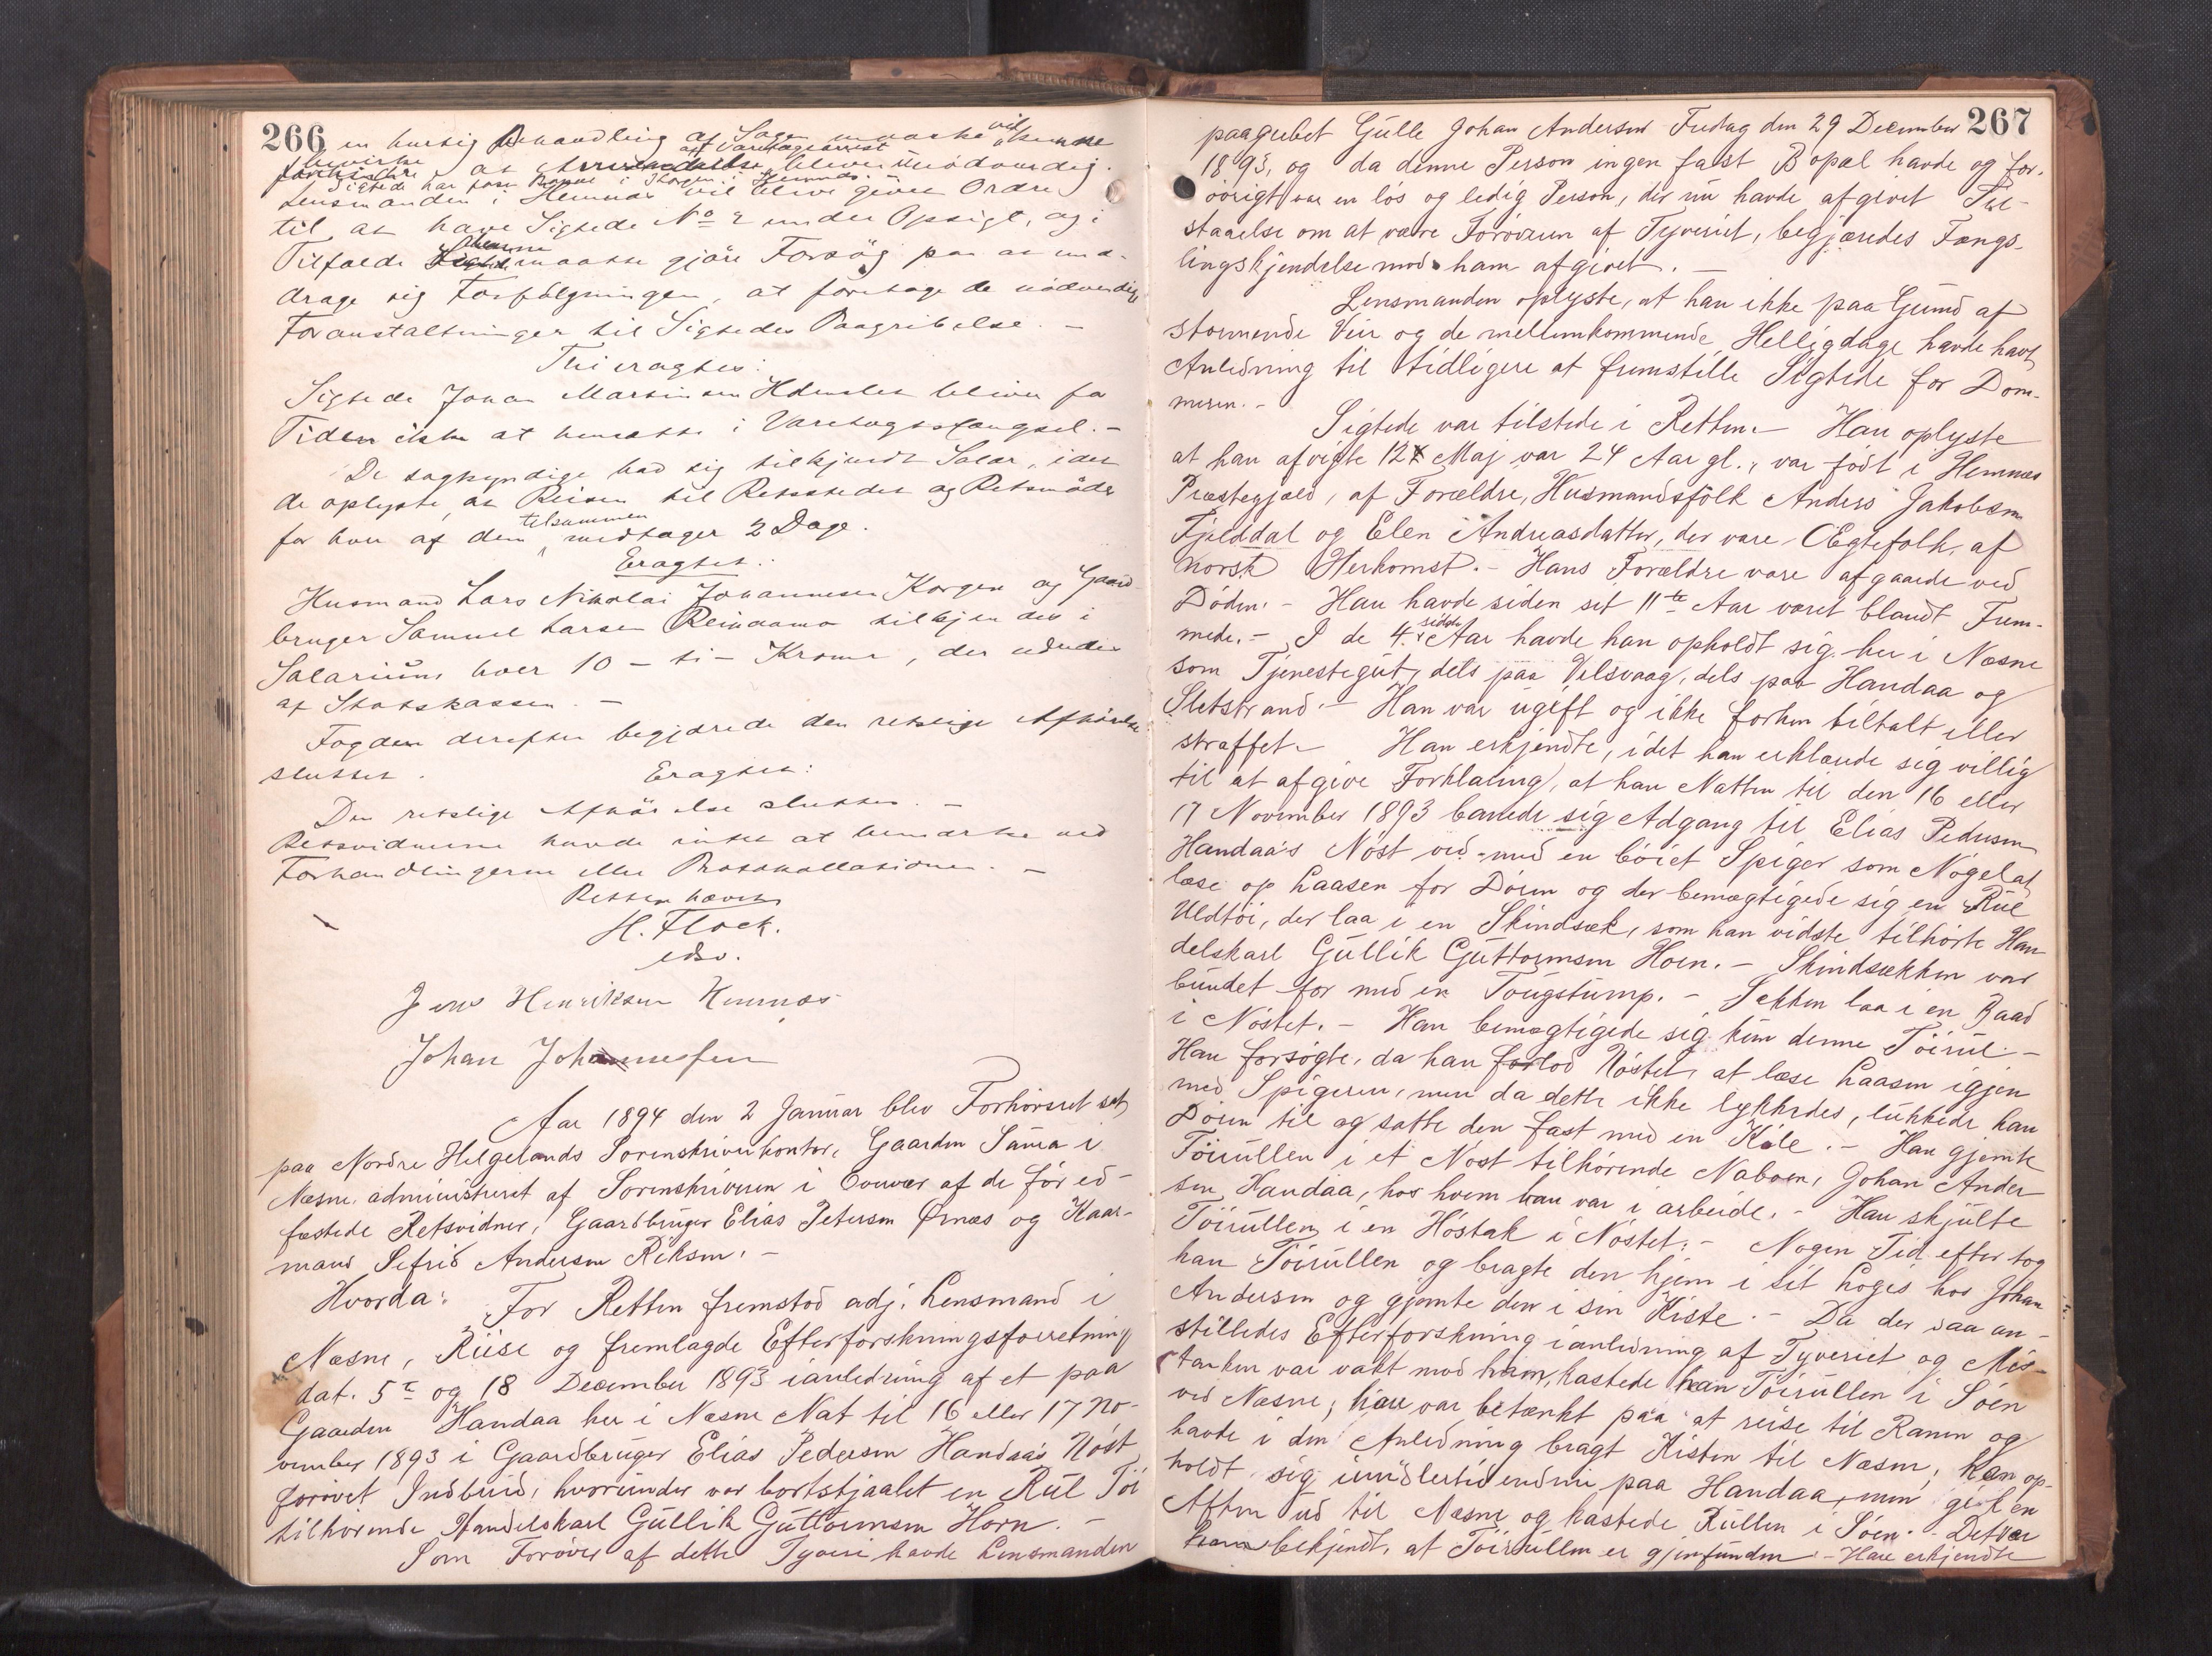 266
en hurtig Behandling af Sagen maaske vil kunne
bevirke at Varetægtsarrest bliver unødvendig.
Sigtede har fast Bopæl i Korgen i Hemnæs.
Lensmanden i Hemnæs vil blive given Ordre
til at have Sigtede No 2 under Opsigt, og i
Tilfælde denne maatte gjöre Forsög paa at und-
drage sig Forfölgningen, at foretage de nödvendige
Foranstaltninger til Sigtedes Paagribelse. –
Thi eragtes:
Sigtede Johan Martinsen bliver for
Tiden ikke at hensætte i Varetægtsfængsel. –
De sagkyndige bad sig tilkjendt Salær, idet
de oplyste, at Reisen til Retsstedet og Retsmödet
for hver af dem tilsammen medtager 2 Dage.
Eragtet:
Husmand Lars Nikolai Johannesen Korgen og Gaard-
bruger Samuel Larsen Reinaamo tilkjendes i
Salarium hver 10 – ti – Kroner, der udredes
af Statskassen. –
Fogden derefter begjærede den retslige Afhörelse
sluttet.
Eragtet:
Den retslige Afhörelse sluttes. –
Retsvidnerne havde intet at bemærke ved
Forhandlingerne eller Protokollationen. –
Retten hævet
H. Flock.
edsv.
Jens Henriksen Hemnæs
Johan Johannessen
Aar 1894 den 2 Januar blev Forhörsret sat
paa Nordre Helgelands Sorenskriverkontor, Gaarden Saura i
Næsne, administreret af Sorenskriveren i Overvær af de för ed-
fæstede Retsvidner, Gaardbruger Elias Petersen Ørnæs og Kaar-
mand Sefrid Andersen Riksen. –
Hvorda: For Retten fremstod adj. Lensmand i
Næsne, Riise og fremlagde Efterforskningsforretning
dat. 5te og 18 December 1893 i anledning af et paa
Gaarden Handaa her i Næsne Nat til 16 eller 17 No-
vember 1893 i Gaardbruger Elias Pedersen Handaa's Nöst
forövet Indbrud, hvorunder var bortstjaalet en Rul Töi
tilhörende Handelskarl Gullik Guttormsen Horn. –
Som Forøver af dette Tyveri havde Lensmanden
267
paagrebet Gulle Johan Andersen Fredag den 29 December
1893, og da denne Person ingen fast Bopæl havde og for-
övrigt var en lös og ledig Person, der nu havde afgivet Til-
staaelse om at være Forøveren af Tyveriet, begjæredes Fængs-
lingskjendelse mod ham afgivet. –
Lensmanden oplyste, at han ikke paa Grund af
stormende Veir og de mellemkommende Helligdage havde havt
Anledning til tidligere at fremstille Sigtede for Dom-
meren. –
Sigtede var tilstede i Retten. – Han oplyste
at han afvigte 12 Maj var 24 Aar gl., var födt i Hemnæs
Præstegjæld, af Forældre, Husmandsfolk Anders Jakobsen
Fjelddal og Elen Andreasdatter, der vare Ægtefolk, af
norsk Herkomst. – Hans Forældre vare afgaaede ved
Döden. – Han havde siden sit 11te Aar været blandt Frem-
mede. – I de 4 sidste Aar havde han opholdt sig her i Næsne
som Tjenestegut, dels paa Velsvaag, dels paa Handaa og
Sletstrand. – Han var ugift og ikke forhen tiltalt eller
straffet. – Han erkjendte, idet han erklærede sig villig
til at afgive Forklaring, at han Natten til den 16 eller
17 November 1893 banede sig Adgang til Elias Pedersen
Handaa's Nöst ved med en böiet Spiger som Nögel at
læse op Laasen for Dören og der bemægtigede sig en Rul
Uldtöi, der laa i en Skindsæk, som han vidste tilhörte Han-
delskarl Gullik Guttormsen Horn. – Skindsækken var
bundet for med en Tougstump. – Sekken laa i en Baad
i Nöstet. – Han bemægtigede sig kun denne Töirul. –
Han forsögte, da han forlod Nöstet, at læse Laasen igjen
med Spigeren, men da dette ikke lykkedes, lukkede han
Dören til og satte den fast med en Kile. – Han gjemte
Töirullen i et Nöst tilhörende Naboen, Johan Ander-
sen Handaa, hos hvem han var i arbeide. – Han skjulte
Töirullen i en Höstak i Nöstet. – Nogen Tid efter tog
han Töirullen og bragte den hjem i sit Logis hos Johan
Andersen og gjemte den i sin Kiste. – Da der saa an-
stilledes Efterforskning i anledning af Tyveriet og Mis-
tanken var vakt mod ham, kastede han Töirullen i Söen
ved Næsne; han var betænkt paa at reise til Ranen og
havde i den Anledning bragt Kisten til Næsne. Han op-
holdt sig imidlertid endnu paa Handaa, men gik en
Aften ud til Næsne og kastede Rullen i Söen. – Det var
ham bekjendt, at Töirullen er gjenfunden. – Han erkjendte